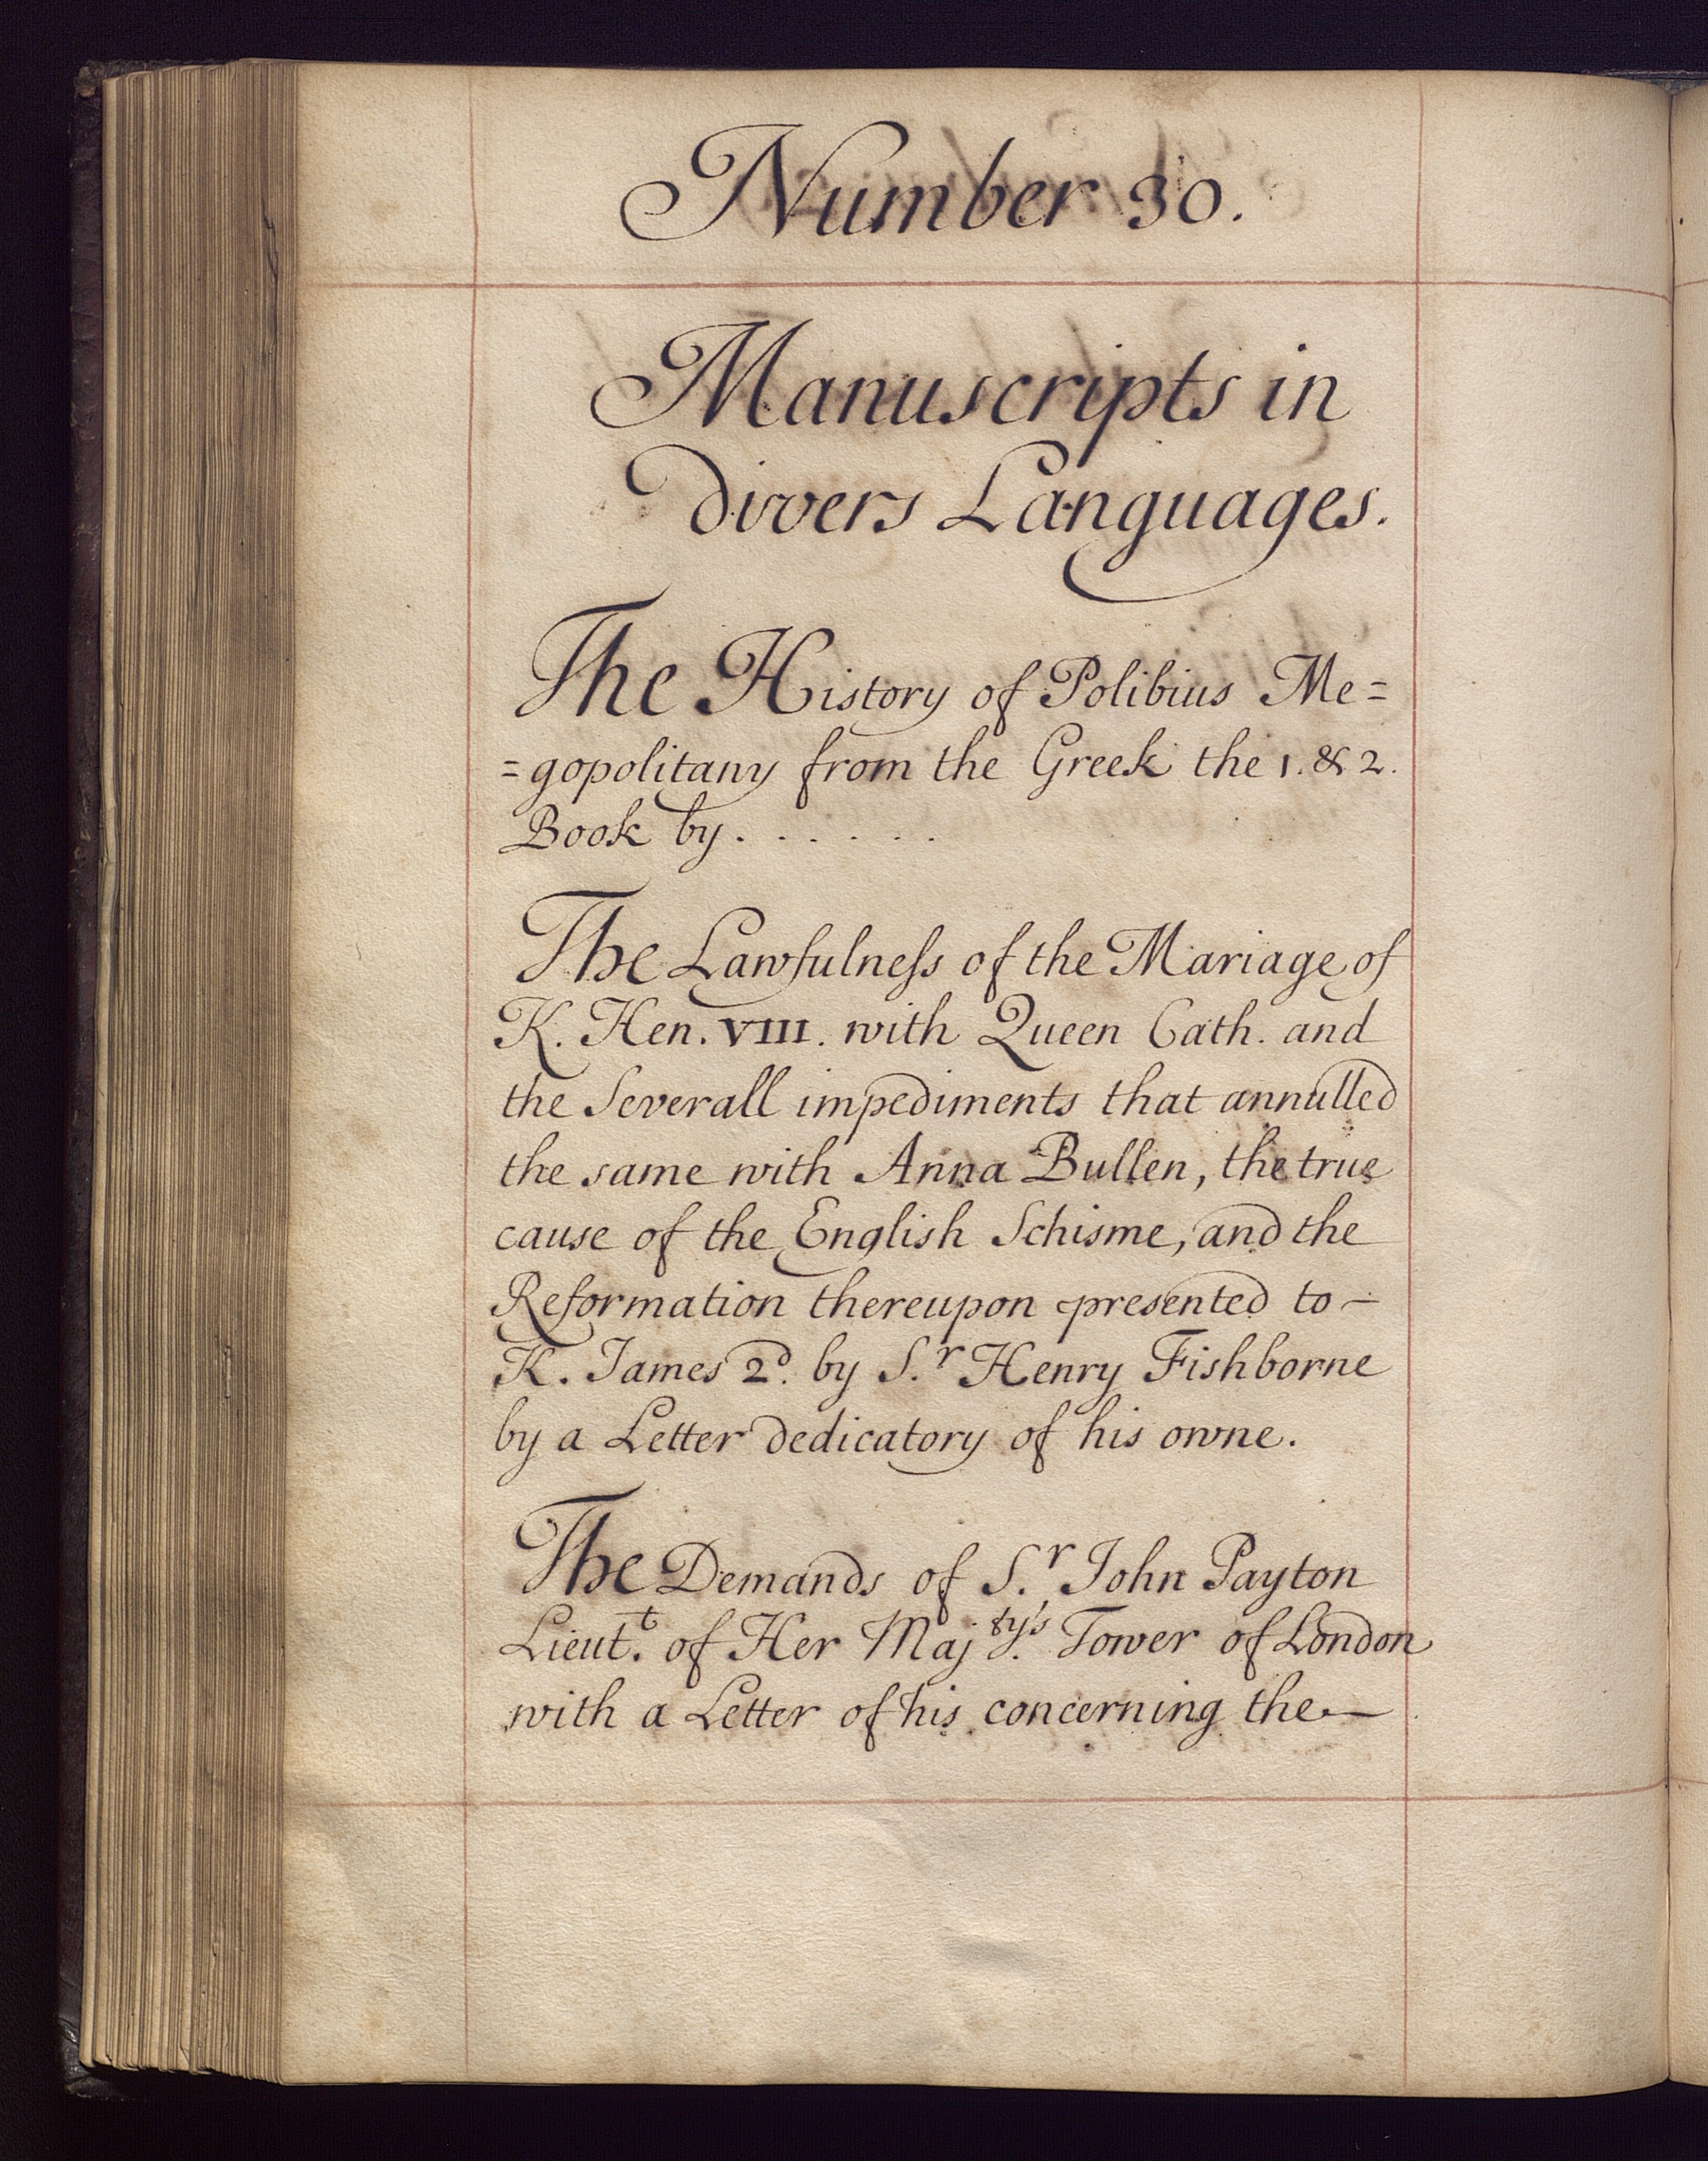 Number 30.
Manuscripts in
divers Languages.
The History of Polibius Me=
=gopolitany from the Greek the 1. & 2.
Book by . . . . . .
The Lawfulneſs of the Mariage of
K. Hen. VIII. with Queen Cath. and
the Severall impediments that annulled
the same with Anna Bullen, the true
cause of the English Schisme, and the
Reformation thereupon presented to –
K. James 2d. by S.r Henry Fishborne
by a Letter dedicatory of his owne.
The Demands of S.r John Payton
Lieut.t of Her Maj.ty's Tower of London
with a Letter of his concerning the —